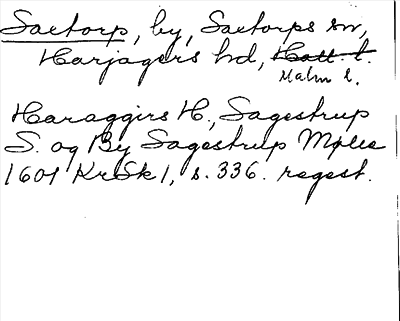 Saxtorp, by, Saxtorps sn,
Harjagers hd, Hatt. l.
Malm l.
Haraggirs H., Sagestrup
S. og By Sagestrup Mølle
1601 KrSk 1, s. 336. regest.